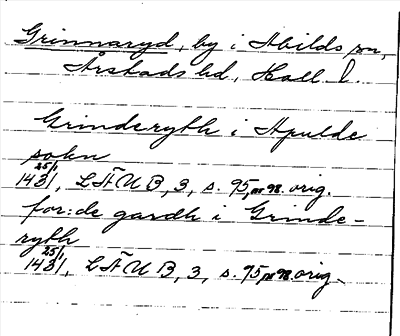 Grinnaryd, by i Abilds sn,
Årstads hd, Hall. l.
Grinderyth i Apulde
sokn
25/1 1431, LÄUB, 3, s. 95, nr 98. orig.
for:de gardh i Grinde-
ryth
25/1 1431, LÄUB, 3, s. 95 nr 98 orig.